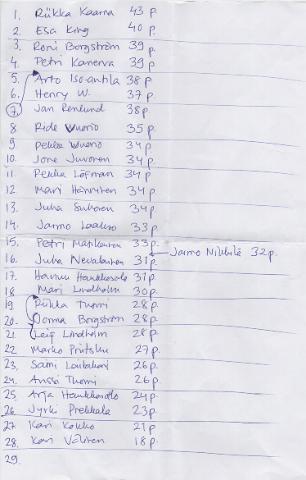 1. Riikka Kaarna 43 p.
2. Esa King 40 p.
3. Roni Bergström 39 p.
4. Petri Kanerva 39 p.
5. Arto Iso-antila 38 p
6. Henry W. 37 p.
7. Jan Renlund 38p
8 Ride Wuorio 35 p.
9 Pekka Wuorio 34 p
10. Jone Juvonen 34 p.
11. Pekka Löfman 34 p
12 Mari Hänninen 34 p
13. Juha Suhonen 34 p.
14. Jarmo Laakso 33p.
15. Petri Matikainen 33p.
Jarmo Nikkilä 32p.
16. Juha Nevalainen 31p
17. Hannu Haukkasalo 31p
18 Mari Lindholm 30p.
19 Riikka Thomi 28p.
20. Jorma Bergström 28p.
21 Leif Lindholm 28p
22 Marko 27p.
23. Sami 26p
24. Anssi Thomi 26p.
25. Arja Haukkasalo 24p
26 Jyrki Prekkala 23p
27 Kari Kokko 21p
28. Kari 18p.
29.